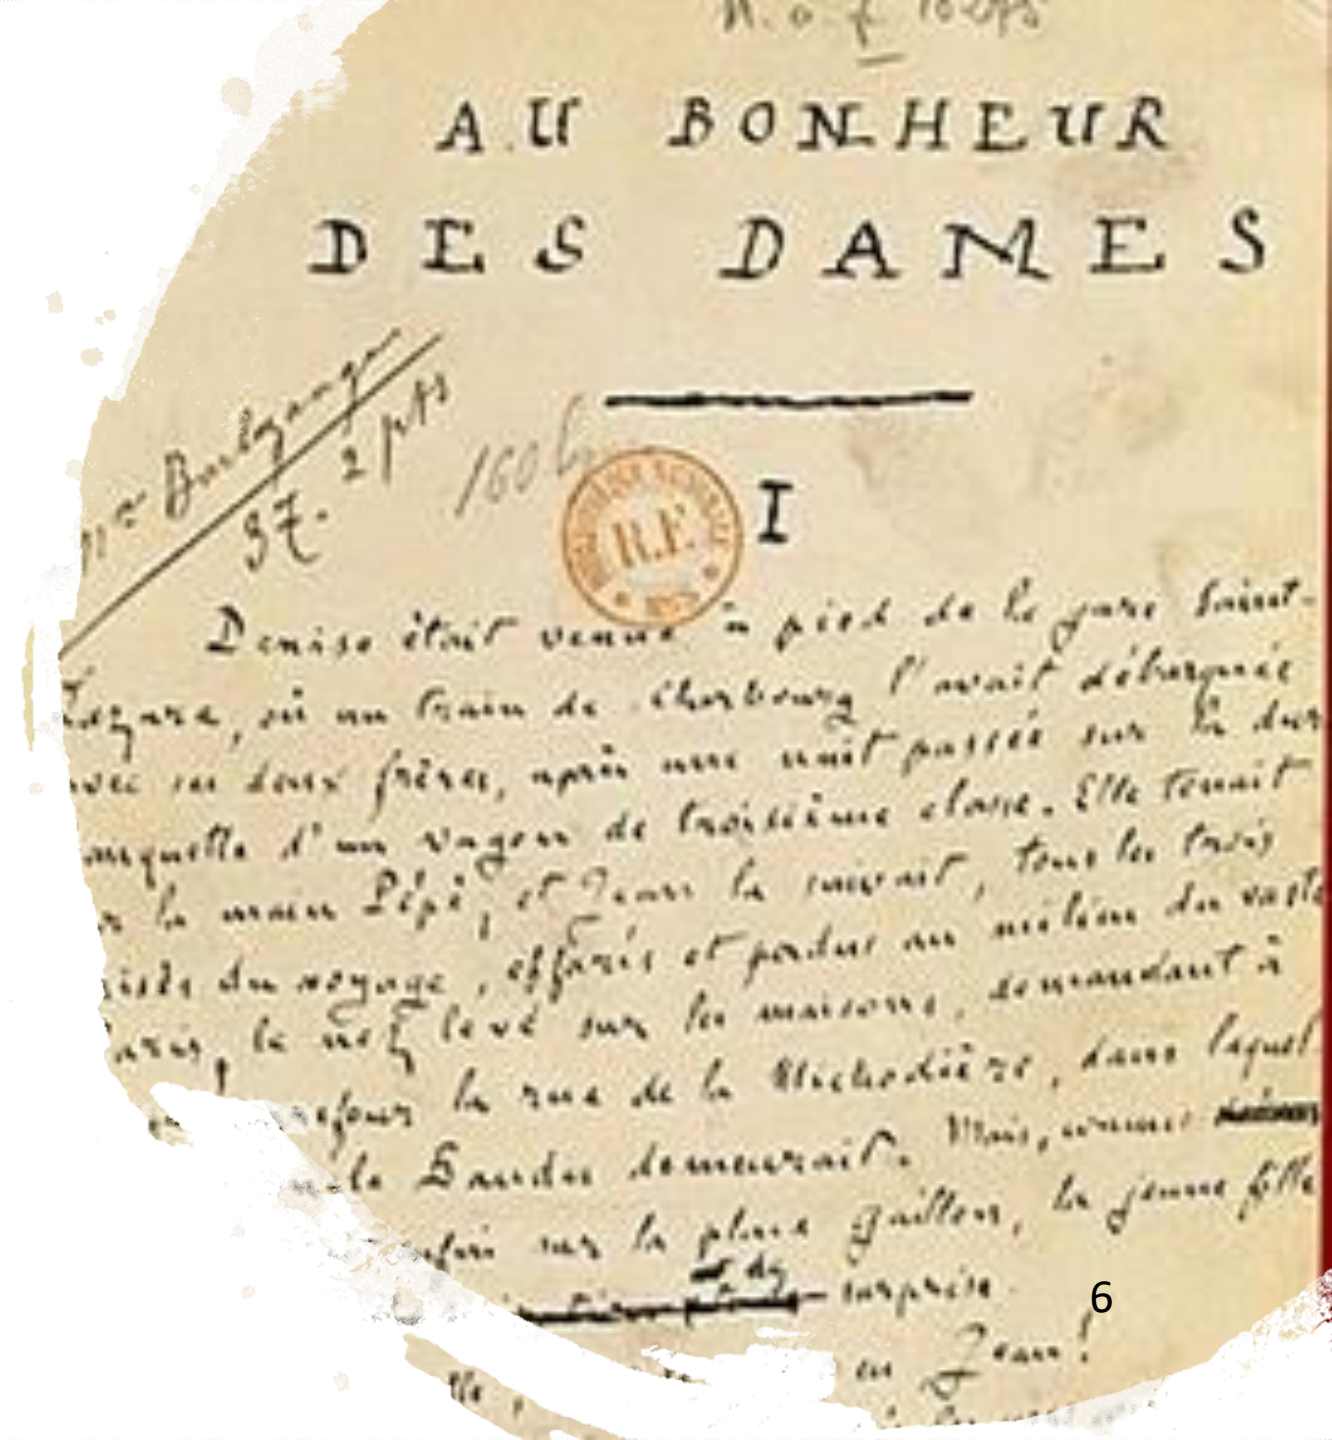 AU BONHEUR
DES DAMES
37. 2 pts
160
R.F.
I
Denise était venue à pied de la gare Saint-
Lazare, où un train de Cherbourg l'avait débarquée
avec ses deux frères, après une nuit passée sur la dure
banquette d'un wagon de troisième classe. Elle tenait
par la main Pépé, et Jean la suivait, tous les trois
brisés du voyage, effarés et perdus au milieu du vaste
Paris, le nez levé sur les maisons, demandant à
la rue de la Michodière, dans laquel
Baudu demeurait. Mais, comme
enfin sur la place Gaillon, la jeune fille
surprise.
6
Jean!